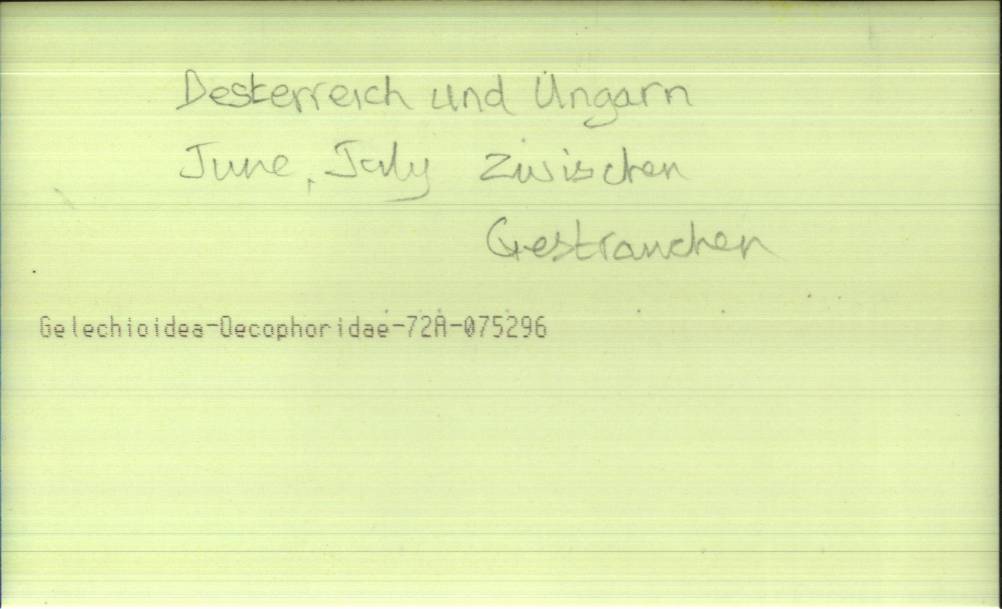 Desterreich und Ungarn
June, July zwischen
Gestrauchen
Gelechioidea-Oecophoridae-72A-075296